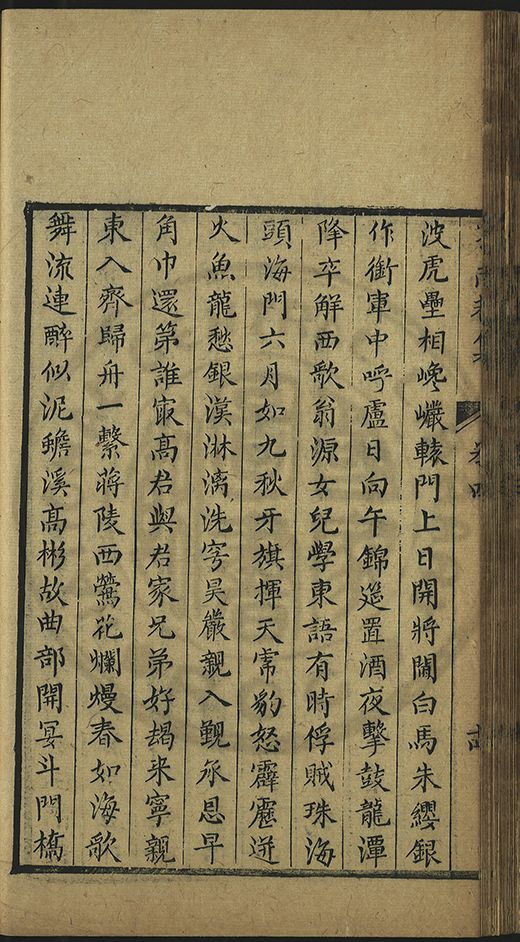 波虎壘相巉巖轅門上日開將閫白馬朱纓銀
作銜軍中呼盧日向午錦筵置酒夜擊鼓龍潭
降卒解西歌翁源女兒學東語有時俘賊珠海
頭海門六月如九秋牙旗揮天雷豹怒霹靂迸
火魚龍愁銀漢淋漓洗穹昊嚴親入覲承恩早
角巾還第誰㝡高君與君家兄弟好朅来寧親
東入齊歸舟一繫蔣陵西鶯花爛熳春如海歌
舞流連醉似泥蟾溪高彬故曲部開宴斗門橋